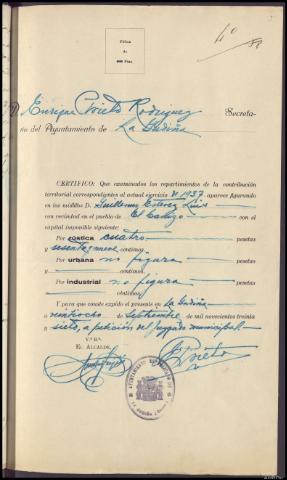 Póliza
de
4º
58
D. Enrique Prieto Rodríguez Secreta-
rio del Ayuntamiento de La Gudiña
CERTIFICO: Que examinados los repartimientos de la contribución
territorial correspondientes al actual ejercicio de 1937 aparece figurando
en los mismos D. Guillermo Estevez Luis
con vecindad en el pueblo de El Cañizo con el
capital imponible siguiente:
Por rústica cuatro pesetas
y nueve céntimos.
Por urbana no figura pesetas
y céntimos.
Por industrial no figura pesetas
céntimos.
Y para que conste expido el presente en La Gudiña
veintiocho de Septiembre de mil novecientos treinta
y siete, a petición del Juzgado municipal.
V.º B.º
EL ALCALDE,
E. Prieto